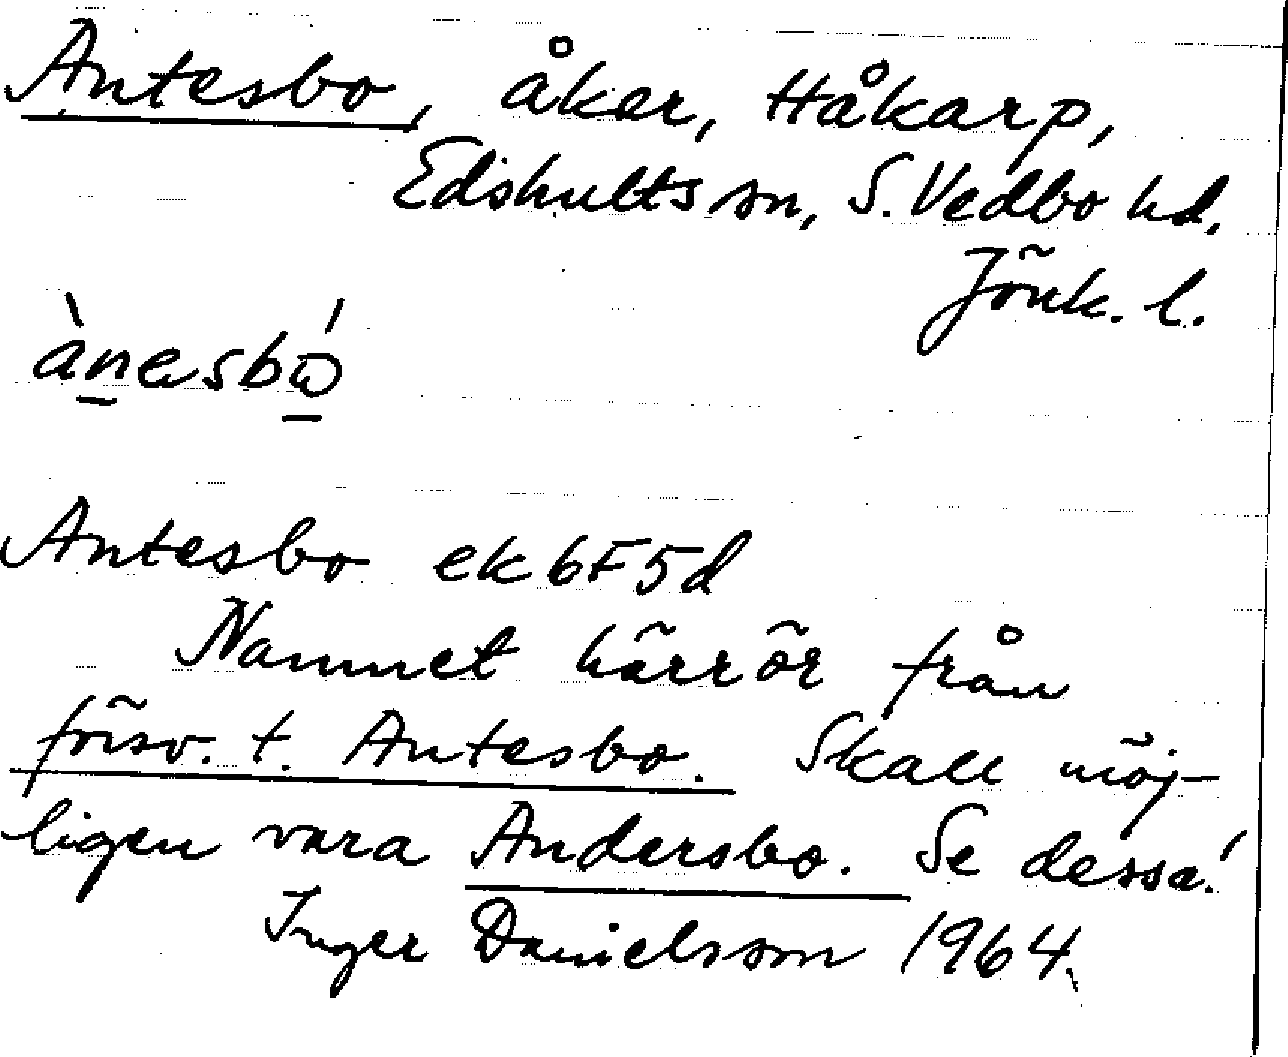 Antesbo, åker, Håkarp,
Edshults sn, S. Vedbo hd.
Jönk. l.
Antesbo ek 6F5d
Namnet härrör från
försv. t. Antesbo. Skall möj-
ligen vara Andersbo. Se dessa!
Inger Danielsson 1964